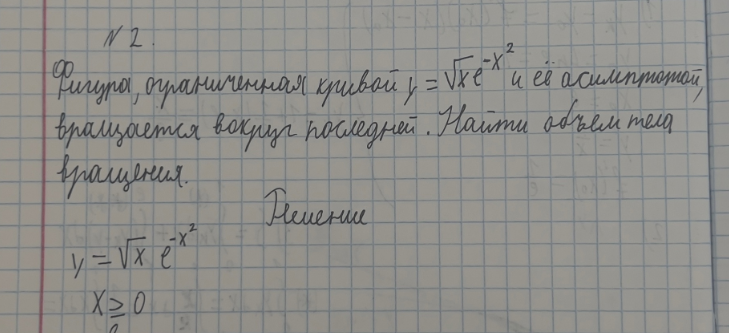 N 2.
Фигура, ограниченная кривой y = √x e^{-x^2} и её асимптотой,
вращается вокруг последней. Найти объем тела
вращения.
Решение
y = √x e^{-x^2}
x ≥ 0